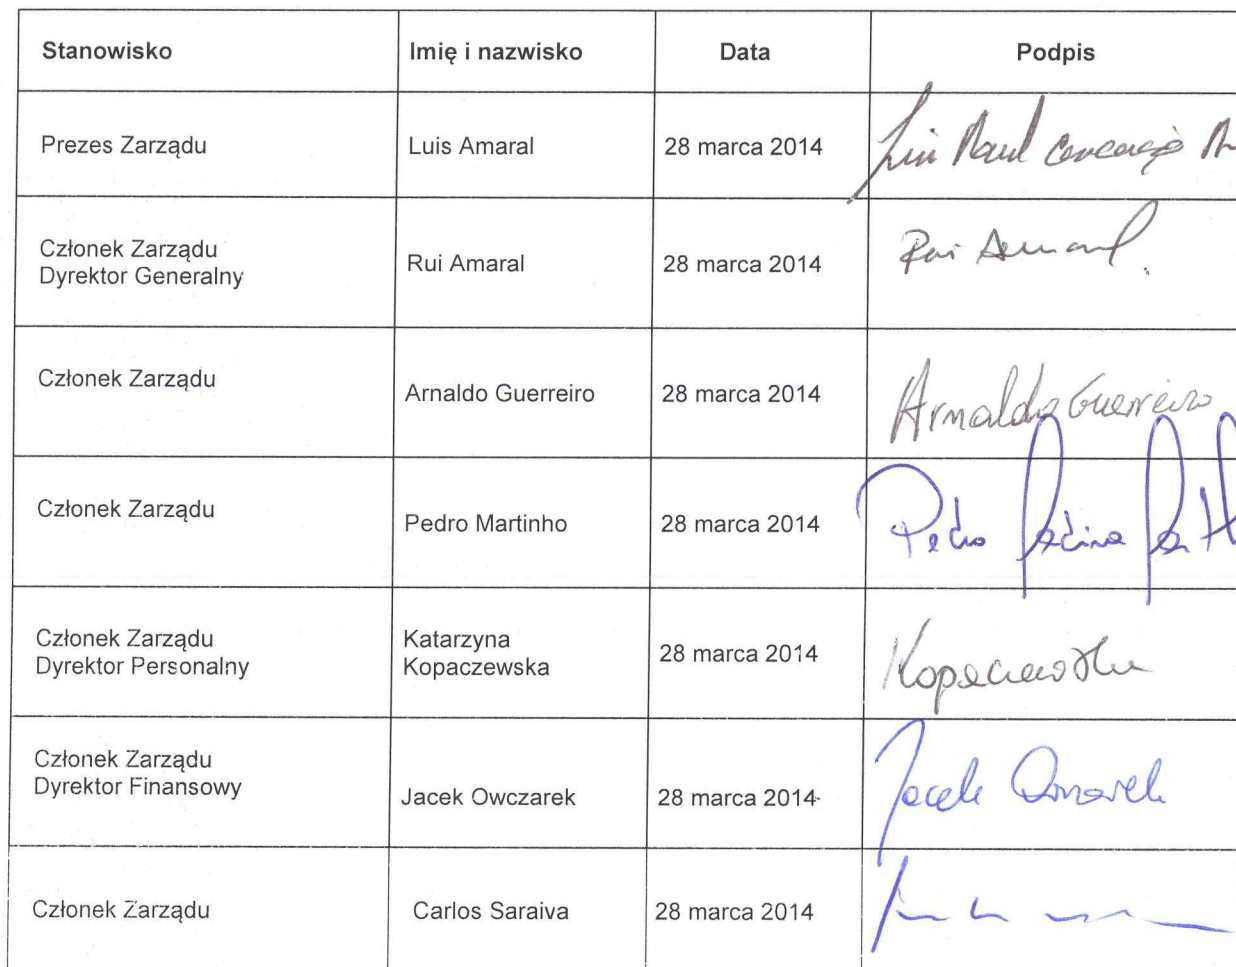 Stanowisko Imię i nazwisko Data Podpis
Prezes Zarządu Luis Amaral 28 marca 2014
Członek Zarządu
Dyrektor Generalny Rui Amaral 28 marca 2014 Rui Amaral.
Członek Zarządu Arnaldo Guerreiro 28 marca 2014 Arnaldo Guerreiro
Członek Zarządu Pedro Martinho 28 marca 2014 Pedro
Członek Zarządu Katarzyna
Dyrektor Personalny Kopaczewska 28 marca 2014 Kopaczewska
Członek Zarządu
Dyrektor Finansowy Jacek Owczarek 28 marca 2014 Jacek Owczarek
Członek Zarządu Carlos Saraiva 28 marca 2014